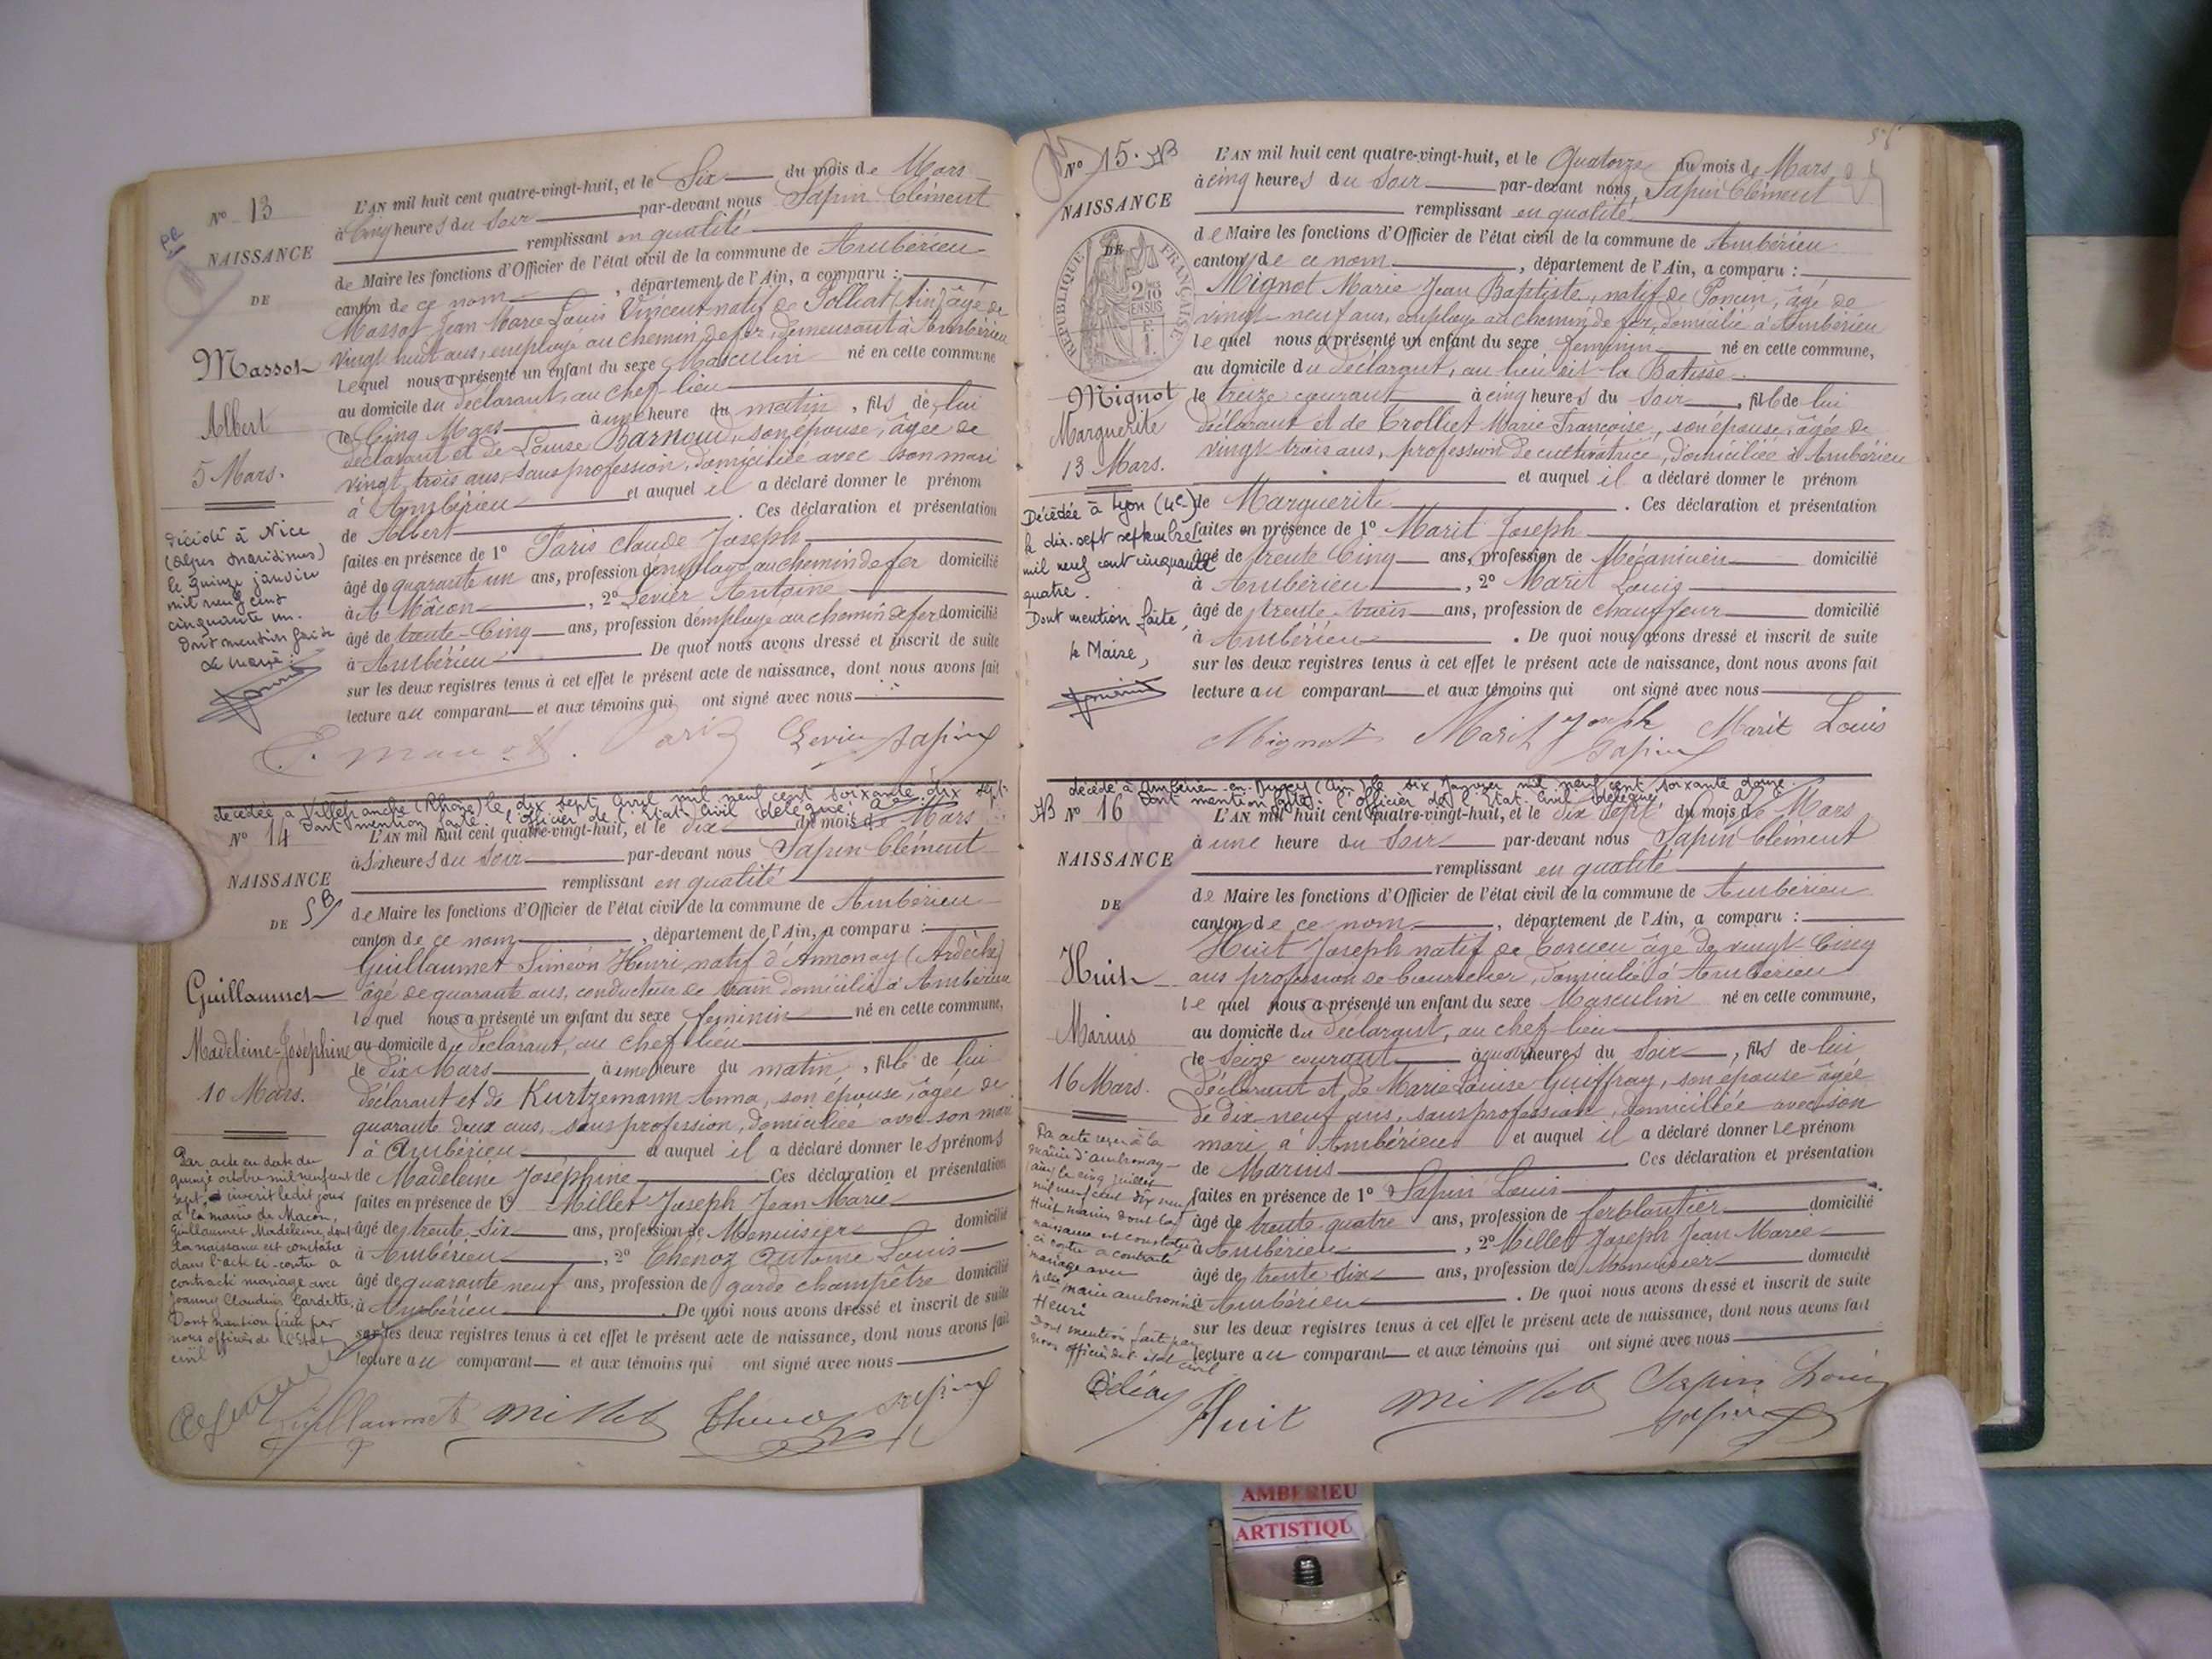 N° 13
NAISSANCE
DE
Massot
Albert
5 Mars.
décédé à Nice
(Alpes Maritimes)
le quinze janvier
mil neuf cent
cinquante un.
Dont mention faite
Le Maire:
L'AN mil huit cent quatre-vingt-huit, et le Six du mois de Mars
à Cinq heures du Soir par-devant nous Sapin Clément
remplissant en qualité
de Maire les fonctions d'Officier de l'état civil de la commune de Ambérieu
canton de ce nom, département de l'Ain, a comparu :
Massot Jean Marie Louis Vincent natif de Polliat (Ain) âgé de
vingt huit ans, employé au chemin de fer, demeurant à Ambérieu
Lequel nous a présenté un enfant du sexe Masculin né en cette commune
au domicile du déclarant, au chef-lieu
le Cinq Mars à une heure du matin, fils de lui
déclarant et de Louise Barnoud, son épouse, âgée de
vingt trois ans, sans profession, domiciliée avec son mari
à Ambérieu et auquel il a déclaré donner le prénom
de Albert. Ces déclaration et présentation
faites en présence de 1° Paris Claude Joseph
âgé de quarante un ans, profession d'employé au chemin de fer domicilié
à Mâcon, 2° Levier Antoine
âgé de trente-Cinq ans, profession d'employé au chemin de fer domicilié
à Ambérieu De quoi nous avons dressé et inscrit de suite
sur les deux registres tenus à cet effet le présent acte de naissance, dont nous avons fait
lecture au comparant et aux témoins qui ont signé avec nous
Paris Levier Sapin
décédée à Villefranche (Rhône) le dix sept avril mil neuf cent soixante dix sept.
Dont mention faite. l'officier de l'Etat Civil délégué.
N° 14
NAISSANCE
DE
Guillaumet
Madeleine-Joséphine
10 Mars.
Par acte en date du
quinze octobre mil neuf cent
sept, inscrit ledit jour
à la mairie de Macon,
Guillaumet Madeleine, dont
la naissance est constatée
dans l'acte ci-contre a
contracté mariage avec
Joanny Claudius Gardette.
Dont mention faite par
nous officier de l'Etat
civil
L'AN mil huit cent quatre-vingt-huit, et le dix du mois de Mars
à Six heures du Soir par-devant nous Sapin Clément
remplissant en qualité
de Maire les fonctions d'Officier de l'état civil de la commune de Ambérieu
canton de ce nom, département de l'Ain, a comparu :
Guillaumet Siméon Henri, natif d'Annonay (Ardèche)
âgé de quarante ans, conducteur de train domicilié à Ambérieu
lequel nous a présenté un enfant du sexe féminin né en cette commune,
au domicile du déclarant, au chef-lieu
le dix Mars à une heure du matin, fille de lui
déclarant et de Kurtzemann Anna, son épouse, âgée de
quarante deux ans, sans profession, domiciliée avec son mari
à Ambérieu et auquel il a déclaré donner les prénoms
de Madeleine Joséphine Ces déclaration et présentation
faites en présence de 1° Millet Joseph Jean Marie
âgé de trente Six ans, profession de Menuisier domicilié
à Ambérieu, 2° Chenoz Antoine Louis
âgé de quarante neuf ans, profession de garde champêtre domicilié
à Ambérieu. De quoi nous avons dressé et inscrit de suite
sur les deux registres tenus à cet effet le présent acte de naissance, dont nous avons fait
lecture au comparant et aux témoins qui ont signé avec nous
Guillaumet Millet Chenoz Sapin
N° 15.
NAISSANCE
DE
RÉPUBLIQUE FRANÇAISE
Mignot
Marguerite
13 Mars.
Décédée à Lyon (4e)
le dix-sept septembre
mil neuf cent cinquante
quatre.
Dont mention faite,
le Maire,
L'AN mil huit cent quatre-vingt-huit, et le Quatorze du mois de Mars
à cinq heures du Soir par-devant nous, Sapin Clément
remplissant en qualité
de Maire les fonctions d'Officier de l'état civil de la commune de Ambérieu
canton de ce nom, département de l'Ain, a comparu :
Mignot Marie Jean Baptiste, natif de Poncin, âgé de
vingt-neuf ans, employé au chemin de fer, domicilié à Ambérieu
lequel nous a présenté un enfant du sexe féminin né en cette commune,
au domicile du déclarant, au lieu dit la Batisse
le treize courant à cinq heures du Soir, fille de lui
déclarant et de Trolliet Marie Françoise, son épouse, âgée de
vingt trois ans, profession de cultivatrice, domiciliée à Ambérieu
et auquel il a déclaré donner le prénom
de Marguerite. Ces déclaration et présentation
faites en présence de 1° Marit Joseph
âgé de trente Cinq ans, profession de Mécanicien domicilié
à Ambérieu, 2° Marit Louis
âgé de trente trois ans, profession de chauffeur domicilié
à Ambérieu. De quoi nous avons dressé et inscrit de suite
sur les deux registres tenus à cet effet le présent acte de naissance, dont nous avons fait
lecture au comparant et aux témoins qui ont signé avec nous
Mignot Marit Joseph Marit Louis
Sapin
décédé à Ambérieu-en-Bugey (Ain) le six Janvier mil neuf cent soixante douze.
Dont mention faite. l'officier de l'Etat Civil délégué
N° 16
NAISSANCE
DE
Huit
Marius
16 Mars.
Par acte reçu à la
mairie d'ambronay
ain le cinq juillet
mil neuf cent dix neuf
Huit marius dont la
naissance est constatée
ci contre a contracté
mariage avec
marie ambroisine
Henri
Dont mention faite par
nous officier de l'état civil
L'AN mil huit cent quatre-vingt-huit, et le dix Sept du mois de Mars
à une heure du Soir par-devant nous Sapin Clément
remplissant en qualité
de Maire les fonctions d'Officier de l'état civil de la commune de Ambérieu
canton de ce nom, département de l'Ain, a comparu :
Huit Joseph natif de Corcieu âgé de vingt Cinq
ans profession de bourrelier, domicilié à Ambérieu
lequel nous a présenté un enfant du sexe Masculin né en cette commune,
au domicile du déclarant, au chef-lieu
le Seize courant à quatre heures du Soir, fils de lui
déclarant et de Marie Louise Guiffray, son épouse âgée
de dix neuf ans, sans profession, domiciliée avec son
mari à Ambérieu et auquel il a déclaré donner le prénom
de Marius. Ces déclaration et présentation
faites en présence de 1° Sapin Louis
âgé de trente-quatre ans, profession de ferblantier domicilié
à Ambérieu, 2° Millet Joseph Jean Marie
âgé de trente Six ans, profession de Menuisier domicilié
à Ambérieu. De quoi nous avons dressé et inscrit de suite
sur les deux registres tenus à cet effet le présent acte de naissance, dont nous avons fait
lecture au comparant et aux témoins qui ont signé avec nous
Huit Millet Sapin Louis
Sapin
AMBERIEU
ARTISTIQU